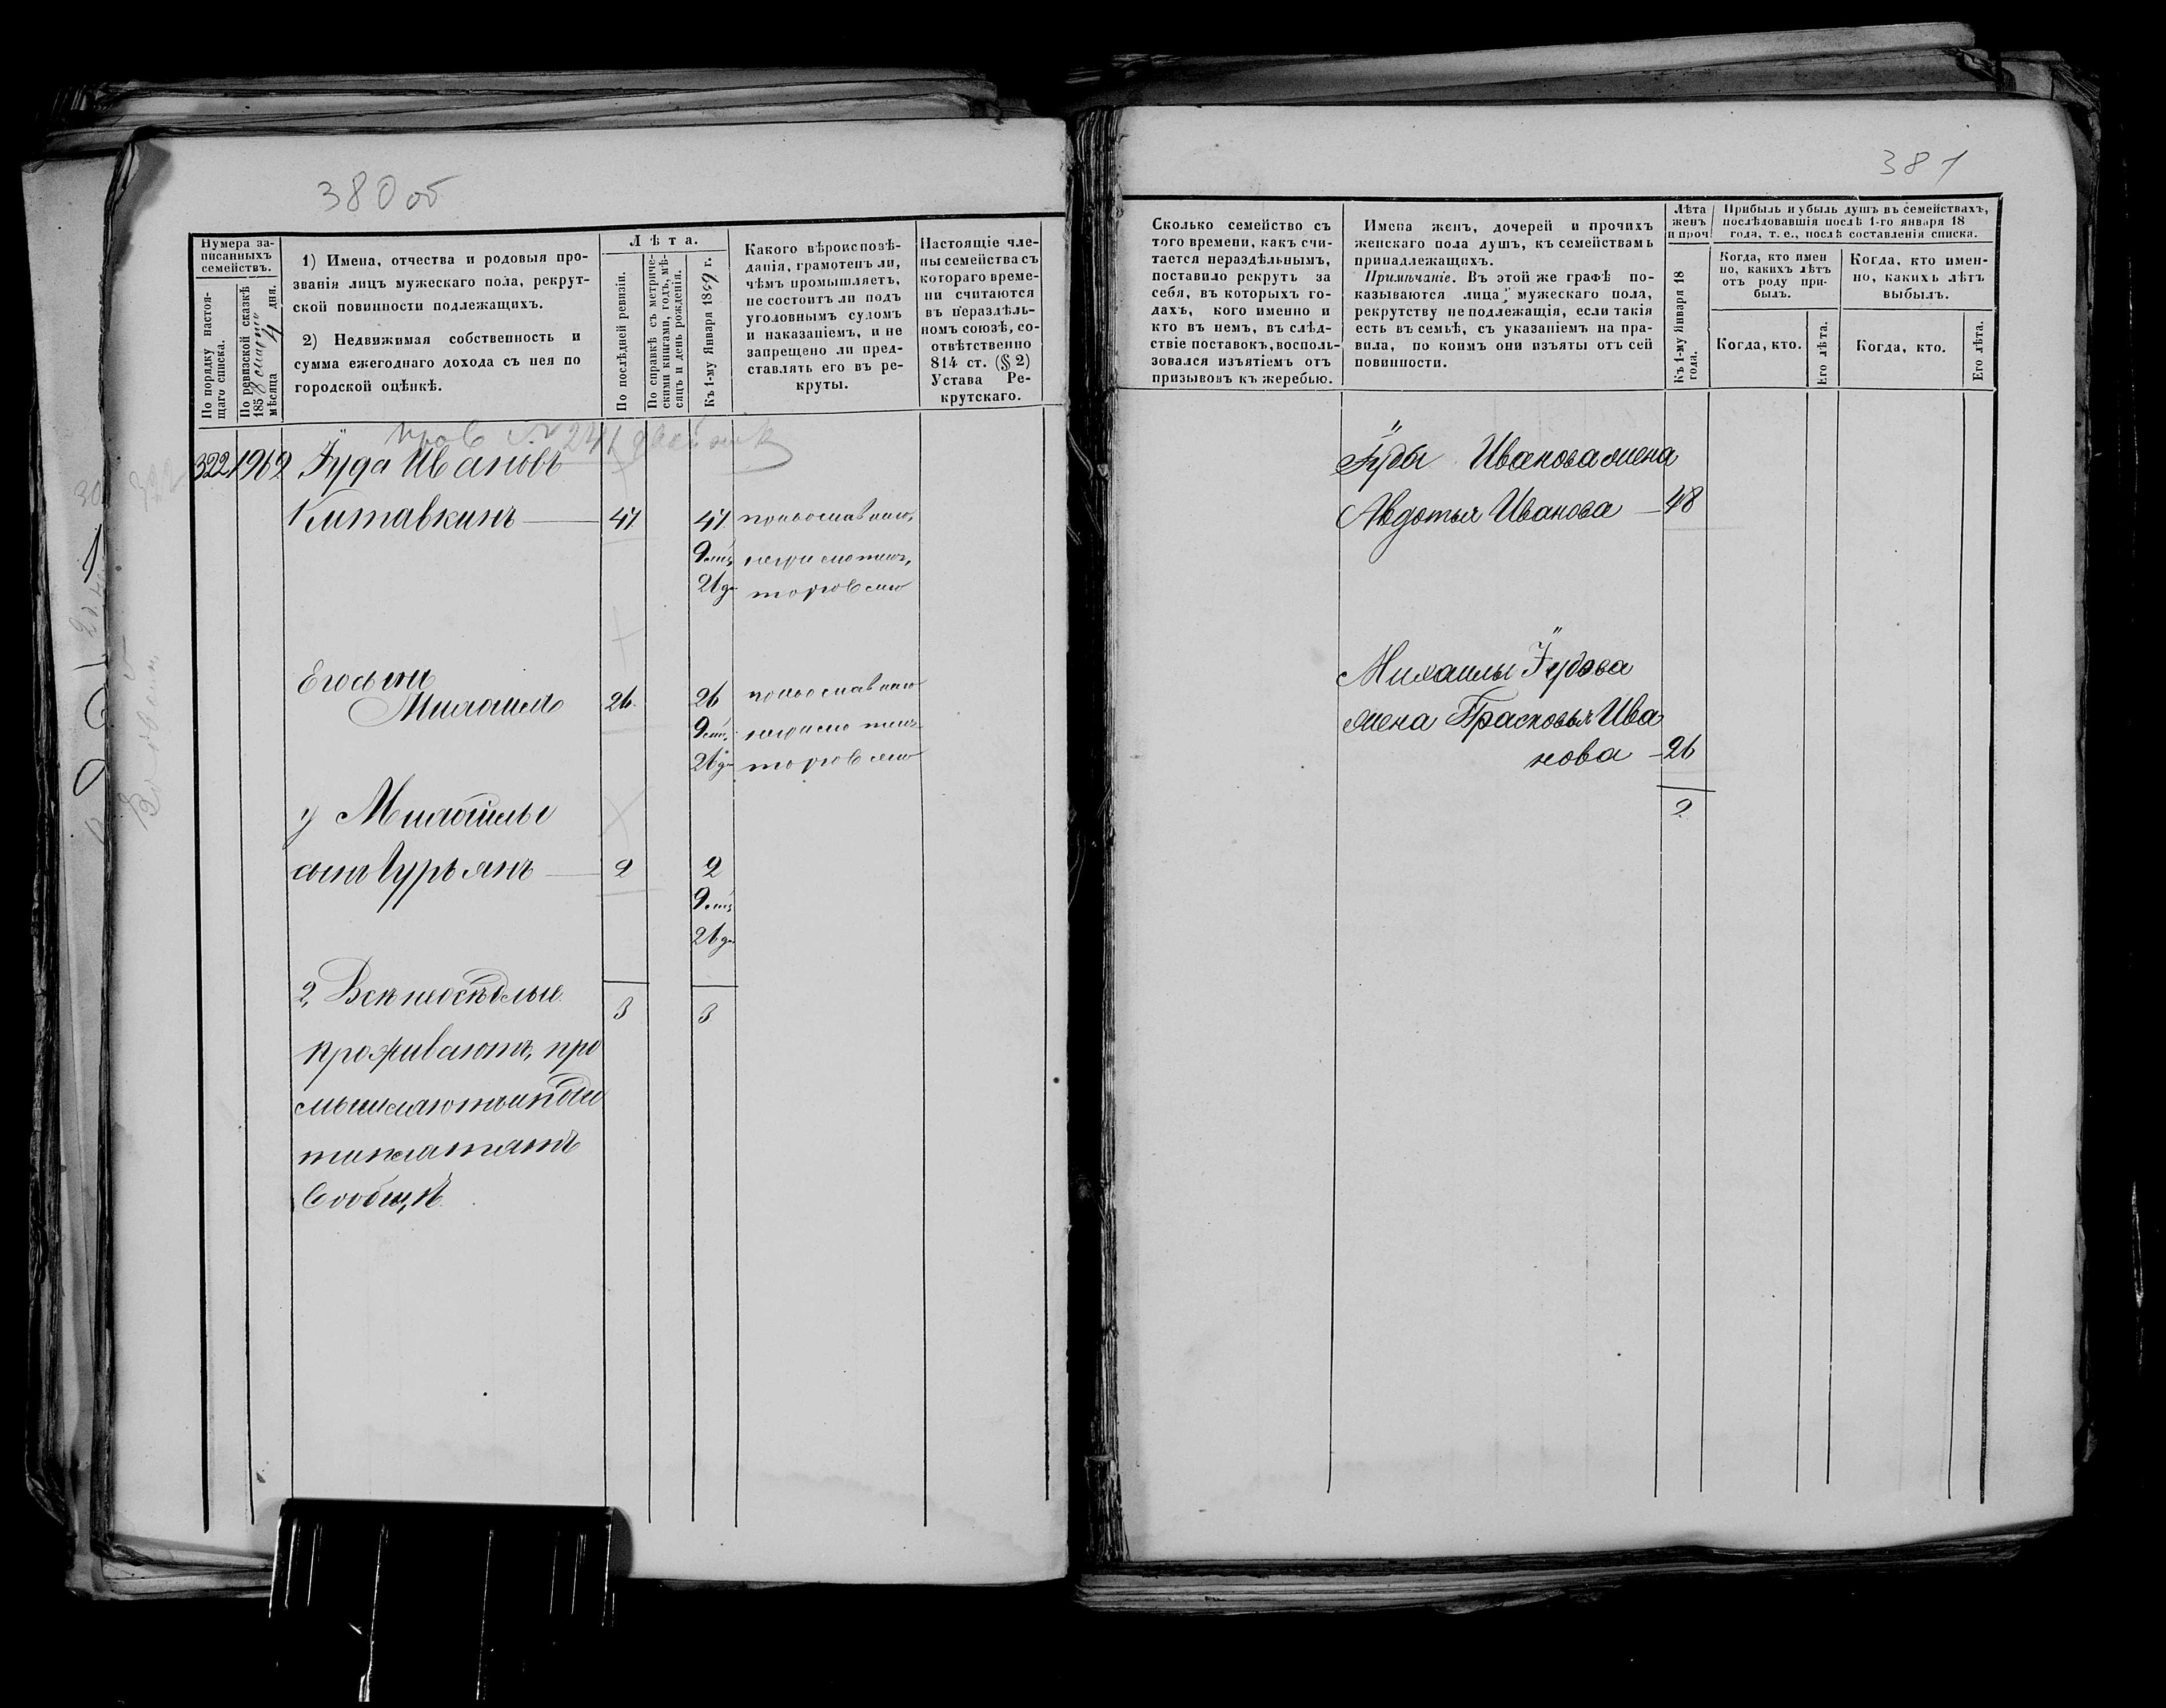 380 об
Нумера за-
писанныхъ
семействъ.
По порядку настоя-
щаго списка.
По ревизской сказкѣ
1858
мѣсяца 4 дня.
1) Имена, отчества и родовыя про-
званія лицъ мужескаго пола, рекрут-
ской повинности подлежащихъ.
2) Недвижимая собственность и
сумма ежегоднаго дохода съ нея по
городской оцѣнкѣ.
Лѣта.
По послѣдней ревизіи.
По справкѣ съ метриче-
скими книгами, годъ, мѣ-
сяцъ и день рожденія.
Къ 1-му Января 1859 г.
Какого вѣроисповѣ-
данія, грамотенъ ли,
чѣмъ промышляетъ,
не состоитъ ли подъ
уголовнымъ судомъ
и наказаніемъ, и не
запрещено ли пред-
ставлять его въ ре-
круты.
Настоящіе чле-
ны семейства съ
котораго време-
ни считаются
въ нераздѣль-
номъ союзѣ, со-
отвѣтственно
814 ст. (§ 2)
Устава Ре-
крутскаго.
№ 241
322 1962 Іуда Ивановъ
Китавкинъ 47 47 православнаго,
9 мѣс. неграмотенъ,
26 дн торговлею
Его сынъ
Михаилъ 26 26 православнаго
9 мѣс. неграмотенъ
26 дн торговлею
у Михаилы
сынъ Гурьянъ 2 2
9 мѣс.
26 дн
3 3
2, Всѣ неосѣдлые
проживаютъ, про
мышляютъ и пода
ти платятъ
Сообща.
381
Сколько семейство съ
того времени, какъ счи-
тается нераздѣльнымъ,
поставило рекрутъ за
себя, въ которыхъ го-
дахъ, кого именно и
кто въ немъ, въ слѣд-
ствіе поставокъ, восполь-
зовался изъятіемъ отъ
призывовъ къ жеребью.
Имена женъ, дочерей и прочихъ
женскаго пола душъ, къ семействамъ
принадлежащихъ.
Примѣчаніе. Въ этой же графѣ по-
казываются лица мужескаго пола,
рекрутству не подлежащія, если такія
есть въ семьѣ, съ указаніемъ на пра-
вила, по коимъ они изъяты отъ сей
повинности.
Лѣта
женъ
и проч
Къ 1-му Января 18
года.
Прибыль и убыль душъ въ семействахъ,
послѣдовавшія послѣ 1-го января 18
года, т. е., послѣ составленія списка.
Когда, кто имен
но, какихъ лѣтъ
отъ роду при-
былъ.
Когда, кто имен-
но, какихъ лѣтъ
выбылъ.
Когда, кто.
Его лѣта.
Когда, кто.
Его лѣта.
Іуды Иванова жена
Авдотья Иванова 48
Михаилы Іудова
жена Прасковья Ива
нова 26
2